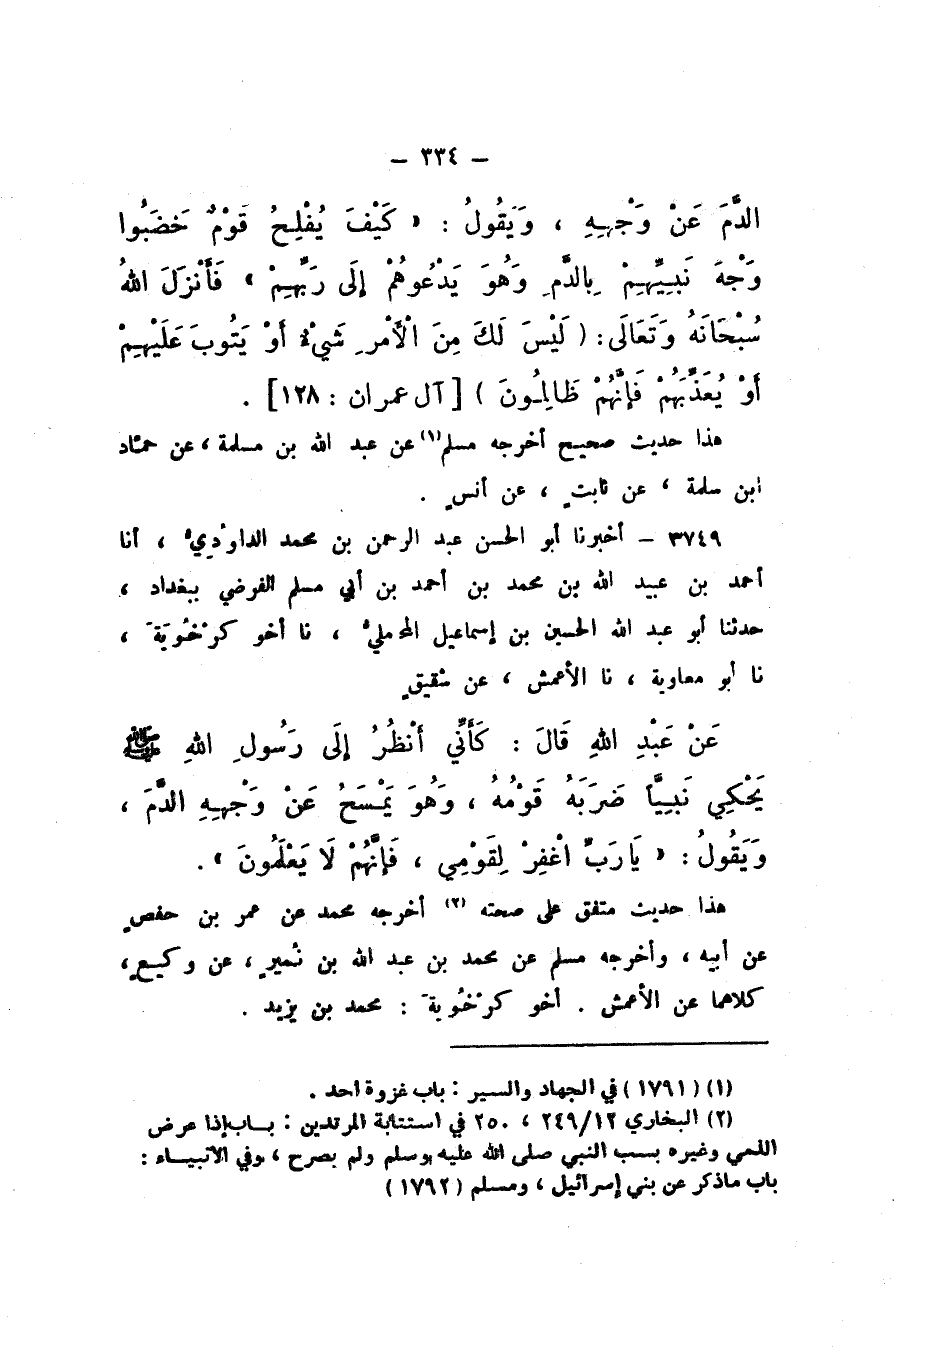 – ٣٣٤ –
الدَّمَ عَنْ وَجْهِهِ ، وَيَقُولُ : « كَيْفَ يُفْلِحُ قَوْمٌ خَضَبُوا
وَجْهَ نَبِيِّهِمْ بِالدَّمِ وَهُوَ يَدْعُوهُمْ إِلَى رَبِّهِمْ » فَأَنْزَلَ اللهُ
سُبْحَانَهُ وَتَعَالَى : ( لَيْسَ لَكَ مِنَ الْأَمْرِ شَيْءٌ أَوْ يَتُوبَ عَلَيْهِمْ
أَوْ يُعَذِّبَهُمْ فَإِنَّهُمْ ظَالِمُونَ ) [ آل عمران : ١٢٨ ] .
هذا حديث صحيح أخرجه مسلم (١) عن عبد الله بن مسلمة ، عن حمّاد
ابن سلمة ، عن ثابتٍ ، عن أنسٍ .
٣٧٤٩ – أخبرنا أبو الحسن عبد الرحمن بن محمد الداوُديُّ ، أنا
أحمد بن عبيد الله بن محمد بن أحمد بن أبي مسلم الفرضي ببغداد ،
حدثنا أبو عبد الله الحسين بن إسماعيل المحامليُّ ، نا أخو كَرْخُويَةَ ،
نا أبو معاوية ، نا الأعمش ، عن شقيقٍ
عَنْ عَبْدِ اللهِ قَالَ : كَأَنِّي أَنْظُرُ إِلَى رَسُولِ اللهِ ﷺ
يَحْكِي نَبِيَّاً ضَرَبَهُ قَوْمُهُ ، وَهُوَ يَمْسَحُ عَنْ وَجْهِهِ الدَّمَ ،
وَيَقُولُ : « يَارَبِّ اغْفِرْ لِقَوْمِي ، فَإِنَّهُمْ لَا يَعْلَمُونَ » .
هذا حديث متفق على صحته (٢) أخرجه محمد عن عمر بن حفصٍ
عن أبيه ، وأخرجه مسلم عن محمد بن عبد الله بن نُميرٍ ، عن وكيعٍ ،
كلاهما عن الأعمش . أخو كَرْخُويةَ : محمد بن يزيد .
(١) ( ١٧٩١ ) في الجهاد والسير : باب غزوة احد .
(٢) البخاري ١٢/٢٤٩ ، ٢٥٠ في استتابة المرتدين : بـاب إذا عرض
الذمي وغيره بسب النبي صلى الله عليه وسلم ولم يصرح ، وفي الانبيـاء :
باب ماذكر عن بني إسرائيل ، ومسلم ( ١٧٩٢ )